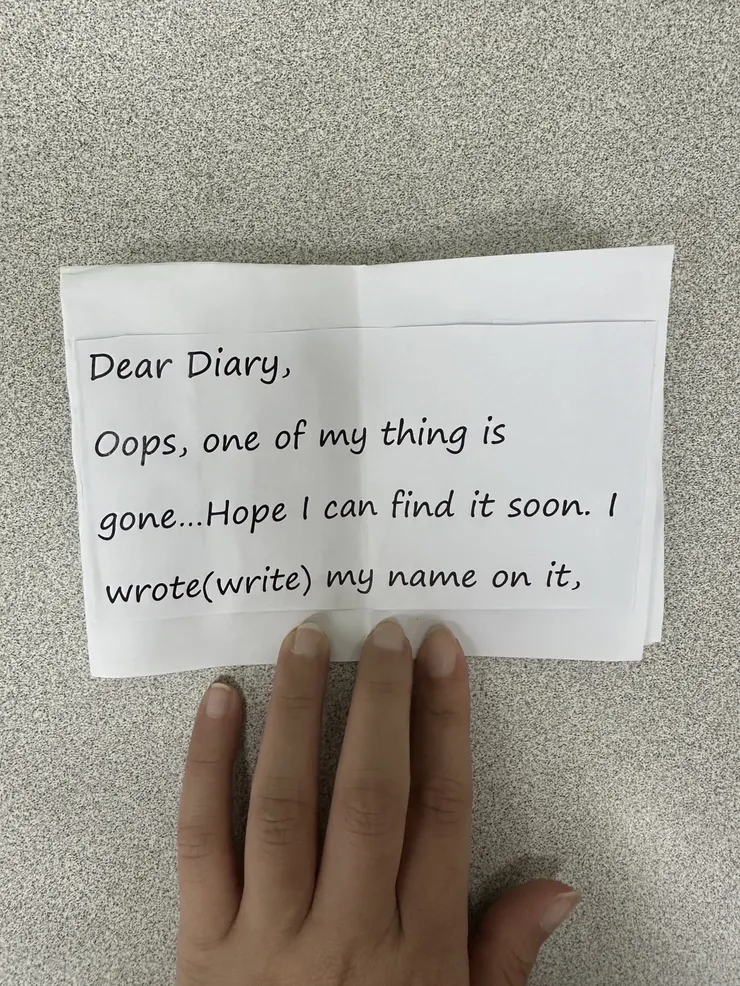 Dear Diary,
Oops, one of my thing is
gone...Hope I can find it soon. I
wrote(write) my name on it,